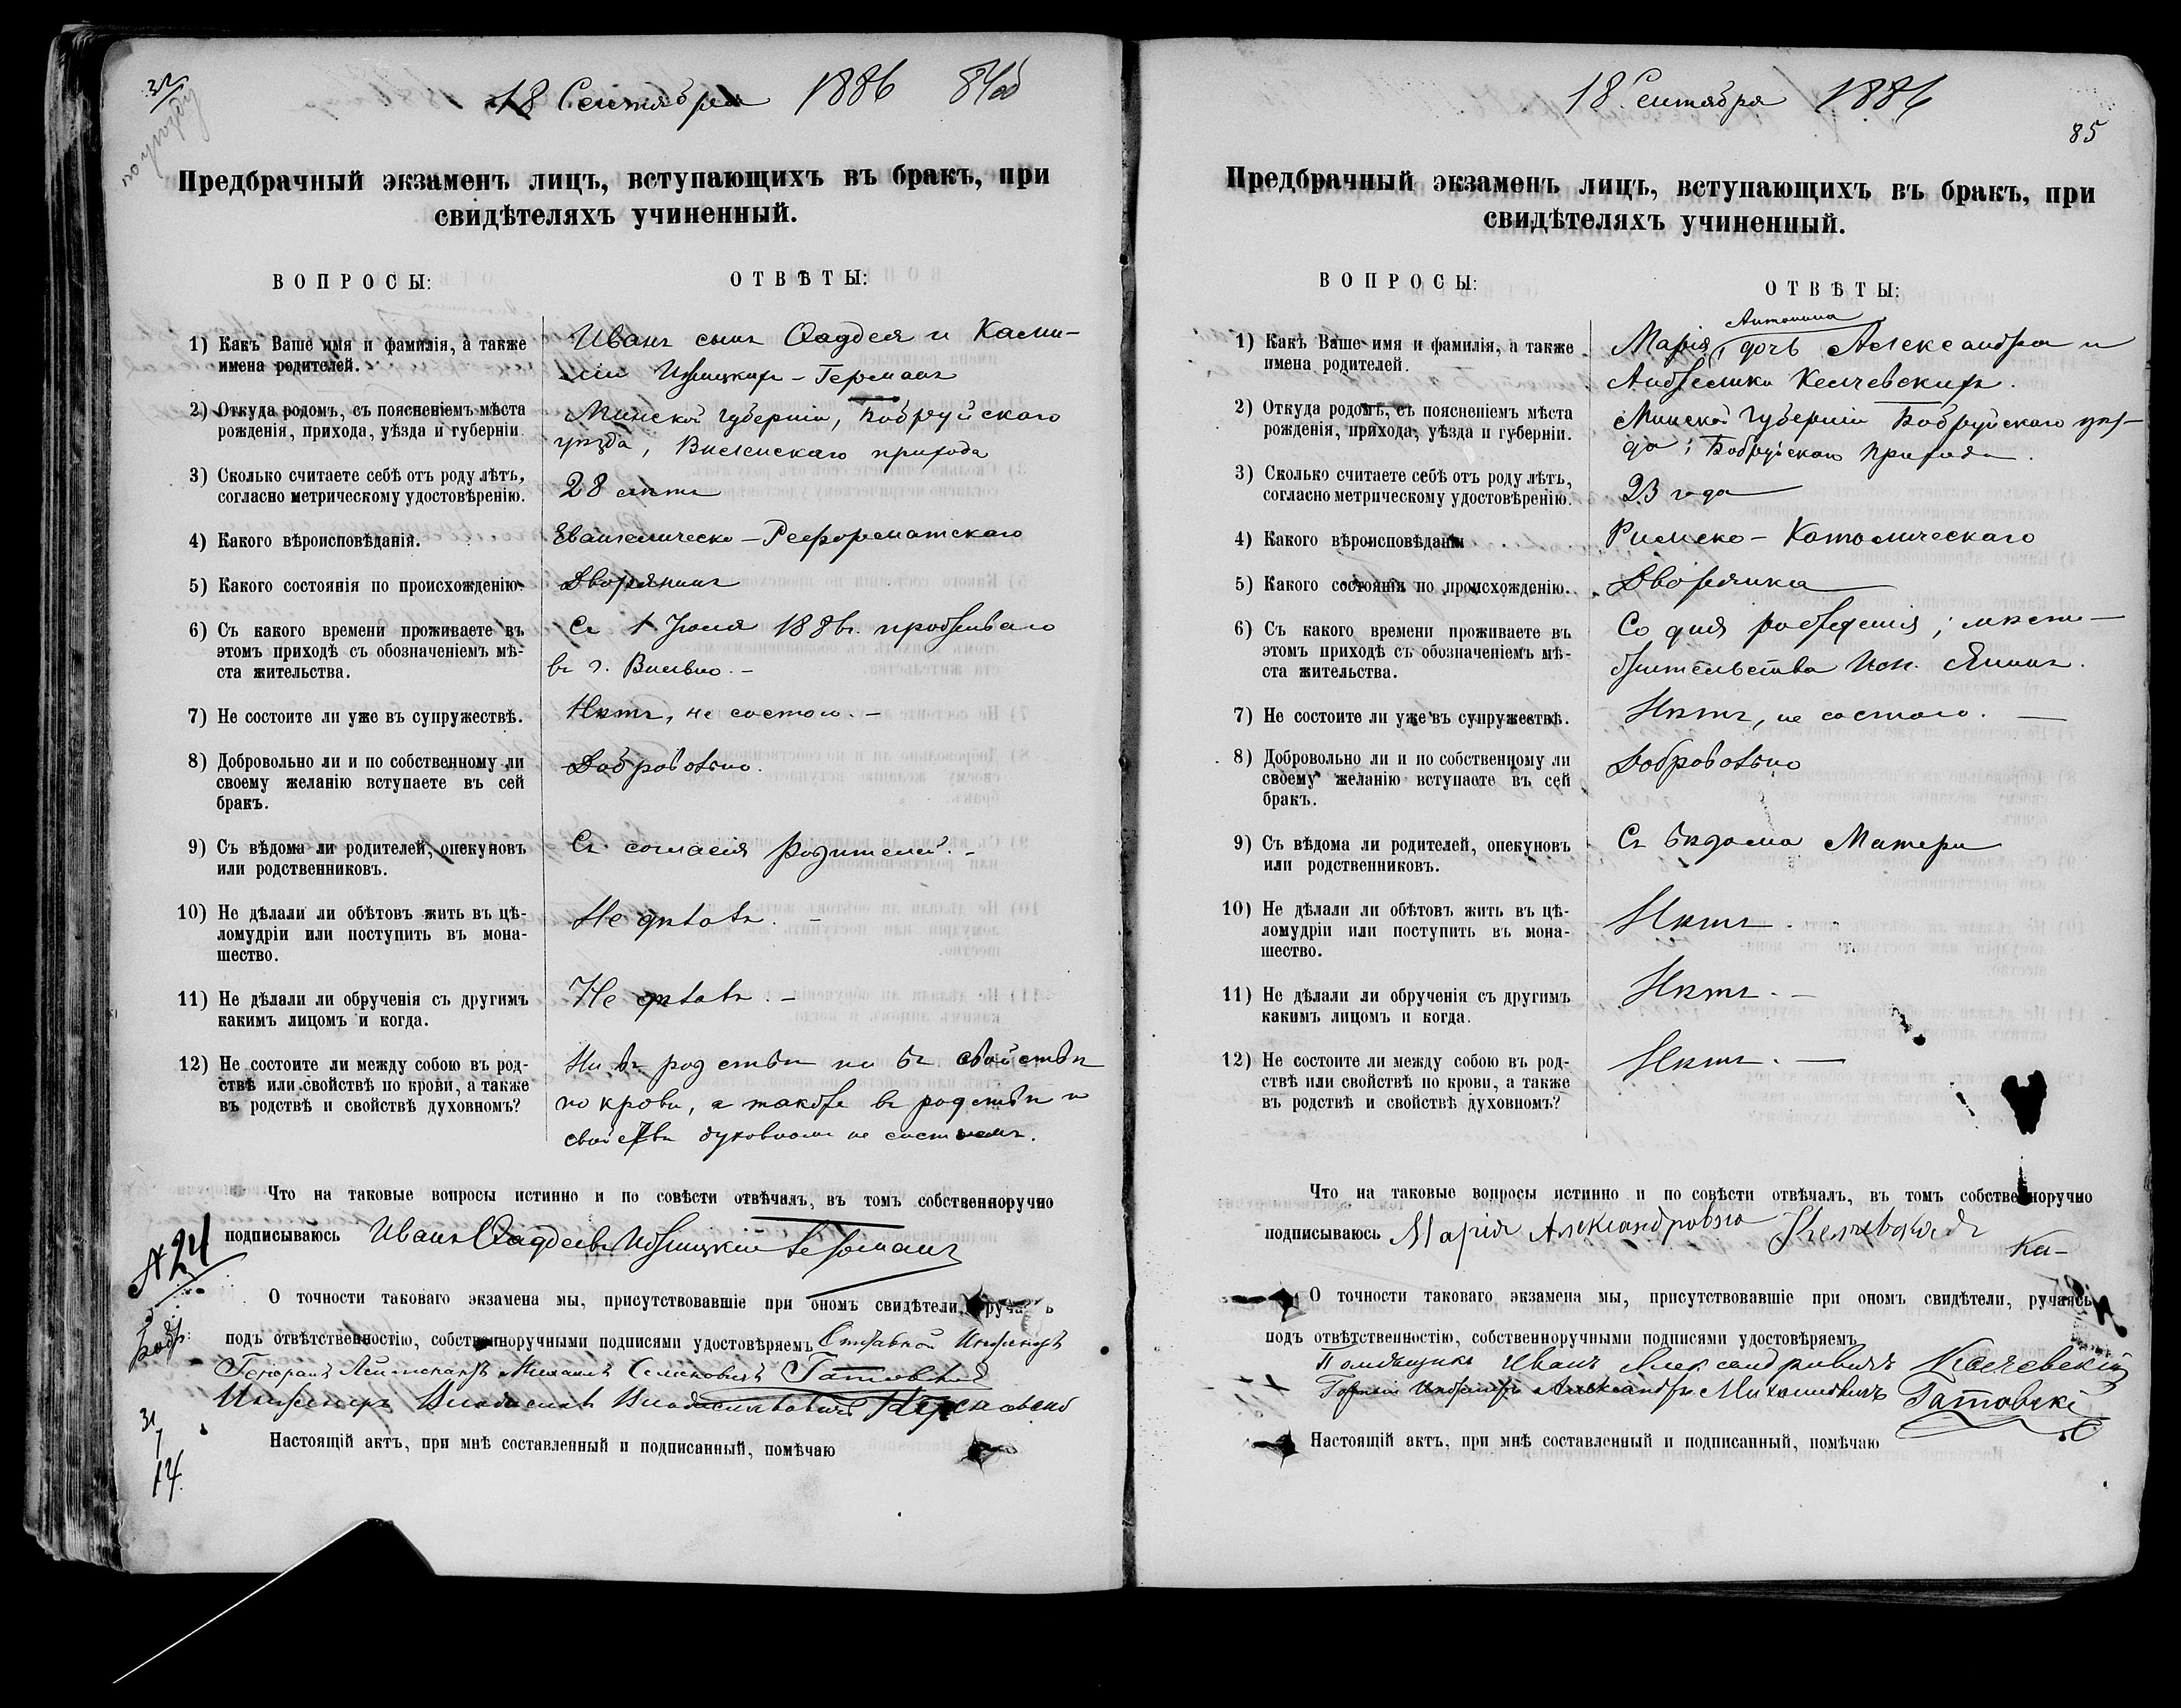 18 Сентября 1886 84об
Предбрачный экзаменъ лицъ, вступающихъ въ бракъ, при
свидѣтеляхъ учиненный.
ВОПРОСЫ: ОТВѢТЫ:
1) Какъ Ваше имя и фамилія, а также
имена родителей.
Иванъ сынъ Ѳаддея и Кази-
міи Ижицкихъ-Германъ
2) Откуда родомъ, съ поясненіемъ мѣста
рожденія, прихода, уѣзда и губерніи.
Минской губерніи, Бобруйскаго
уѣзда, Виленскаго прихода
3) Сколько считаете себѣ отъ роду лѣтъ,
согласно метрическому удостовѣренію.
28 лѣтъ
4) Какого вѣроисповѣданія.
Евангелическо-Реформатскаго
5) Какого состоянія по происхожденію.
Дворянинъ
6) Съ какого времени проживаете въ
этомъ приходѣ съ обозначеніемъ мѣ-
ста жительства.
Съ 1 Іюля 1886г. проживаю
въ г. Вильно. -
7) Не состоите ли уже въ супружествѣ.
Нѣтъ, не состою. -
8) Добровольно ли и по собственному ли
своему желанію вступаете въ сей
бракъ.
Добровольно.
9) Съ вѣдома ли родителей, опекуновъ
или родственниковъ.
Съ согласія родителей. -
10) Не дѣлали ли обѣтовъ жить въ цѣ-
ломудріи или поступить въ мона-
шество.
Не дѣлалъ. -
11) Не дѣлали ли обрученія съ другимъ
какимъ лицомъ и когда.
Не дѣлалъ. -
12) Не состоите ли между собою въ род-
ствѣ или свойствѣ по крови, а также
въ родствѣ и свойствѣ духовномъ?
Ни въ родствѣ ни въ свойствѣ
по крови, а также въ родствѣ и
свойствѣ духовномъ не состоимъ.
Что на таковые вопросы истинно и по совѣсти отвѣчалъ, въ томъ собственноручно
подписываюсь Иванъ Ѳаддеевъ Ижицкій Германъ
№ 24
О точности таковаго экзамена мы, присутствовавшіе при ономъ свидѣтели, ручаясь
подъ отвѣтственностію, собственноручными подписями удостовѣряемъ Отставной Инженеръ
Генералъ Лейтенантъ Михаилъ Семеновичъ Гатовскій
Инженеръ Владиславъ Владиславовичъ
Настоящій актъ, при мнѣ составленный и подписанный, помѣчаю
18 Сентября 1886
85
Предбрачный экзаменъ лицъ, вступающихъ въ бракъ, при
свидѣтеляхъ учиненный.
ВОПРОСЫ: ОТВѢТЫ:
1) Какъ Ваше имя и фамилія, а также
имена родителей.
Антонина
Марія, дочь Александра и
Анжелики Келчевскихъ.
2) Откуда родомъ, съ поясненіемъ мѣста
рожденія, прихода, уѣзда и губерніи.
Минской Губерніи Бобруйскаго уѣз-
да; Бобруйскаго прихода.
3) Сколько считаете себѣ отъ роду лѣтъ,
согласно метрическому удостовѣренію.
23 года
4) Какого вѣроисповѣданія
Римско-Католическаго
5) Какого состоянія по происхожденію.
Дворянка
6) Съ какого времени проживаете въ
этомъ приходѣ съ обозначеніемъ мѣ-
ста жительства.
Со дня рожденія; мѣсто-
жительства
7) Не состоите ли уже въ супружествѣ.
Нѣтъ, не состою.
8) Добровольно ли и по собственному ли
своему желанію вступаете въ сей
бракъ.
Добровольно
9) Съ вѣдома ли родителей, опекуновъ
или родственниковъ.
Съ вѣдома Матери
10) Не дѣлали ли обѣтовъ жить въ цѣ-
ломудріи или поступить въ мона-
шество.
Нѣтъ.
11) Не дѣлали ли обрученія съ другимъ
какимъ лицомъ и когда.
Нѣтъ. -
12) Не состоите ли между собою въ род-
ствѣ или свойствѣ по крови, а также
въ родствѣ и свойствѣ духовномъ?
Нѣтъ. -
Что на таковые вопросы истинно и по совѣсти отвѣчалъ, въ томъ собственноручно
подписываюсь Марія Александровна Келчевская
О точности таковаго экзамена мы, присутствовавшіе при ономъ свидѣтели, ручаясь
подъ отвѣтственностію, собственноручными подписями удостовѣряемъ
Помѣщикъ Иванъ Александровичъ Келчевскій
Горный Инженеръ Александръ Михаиловичъ Гатовскі
Настоящій актъ, при мнѣ составленный и подписанный, помѣчаю